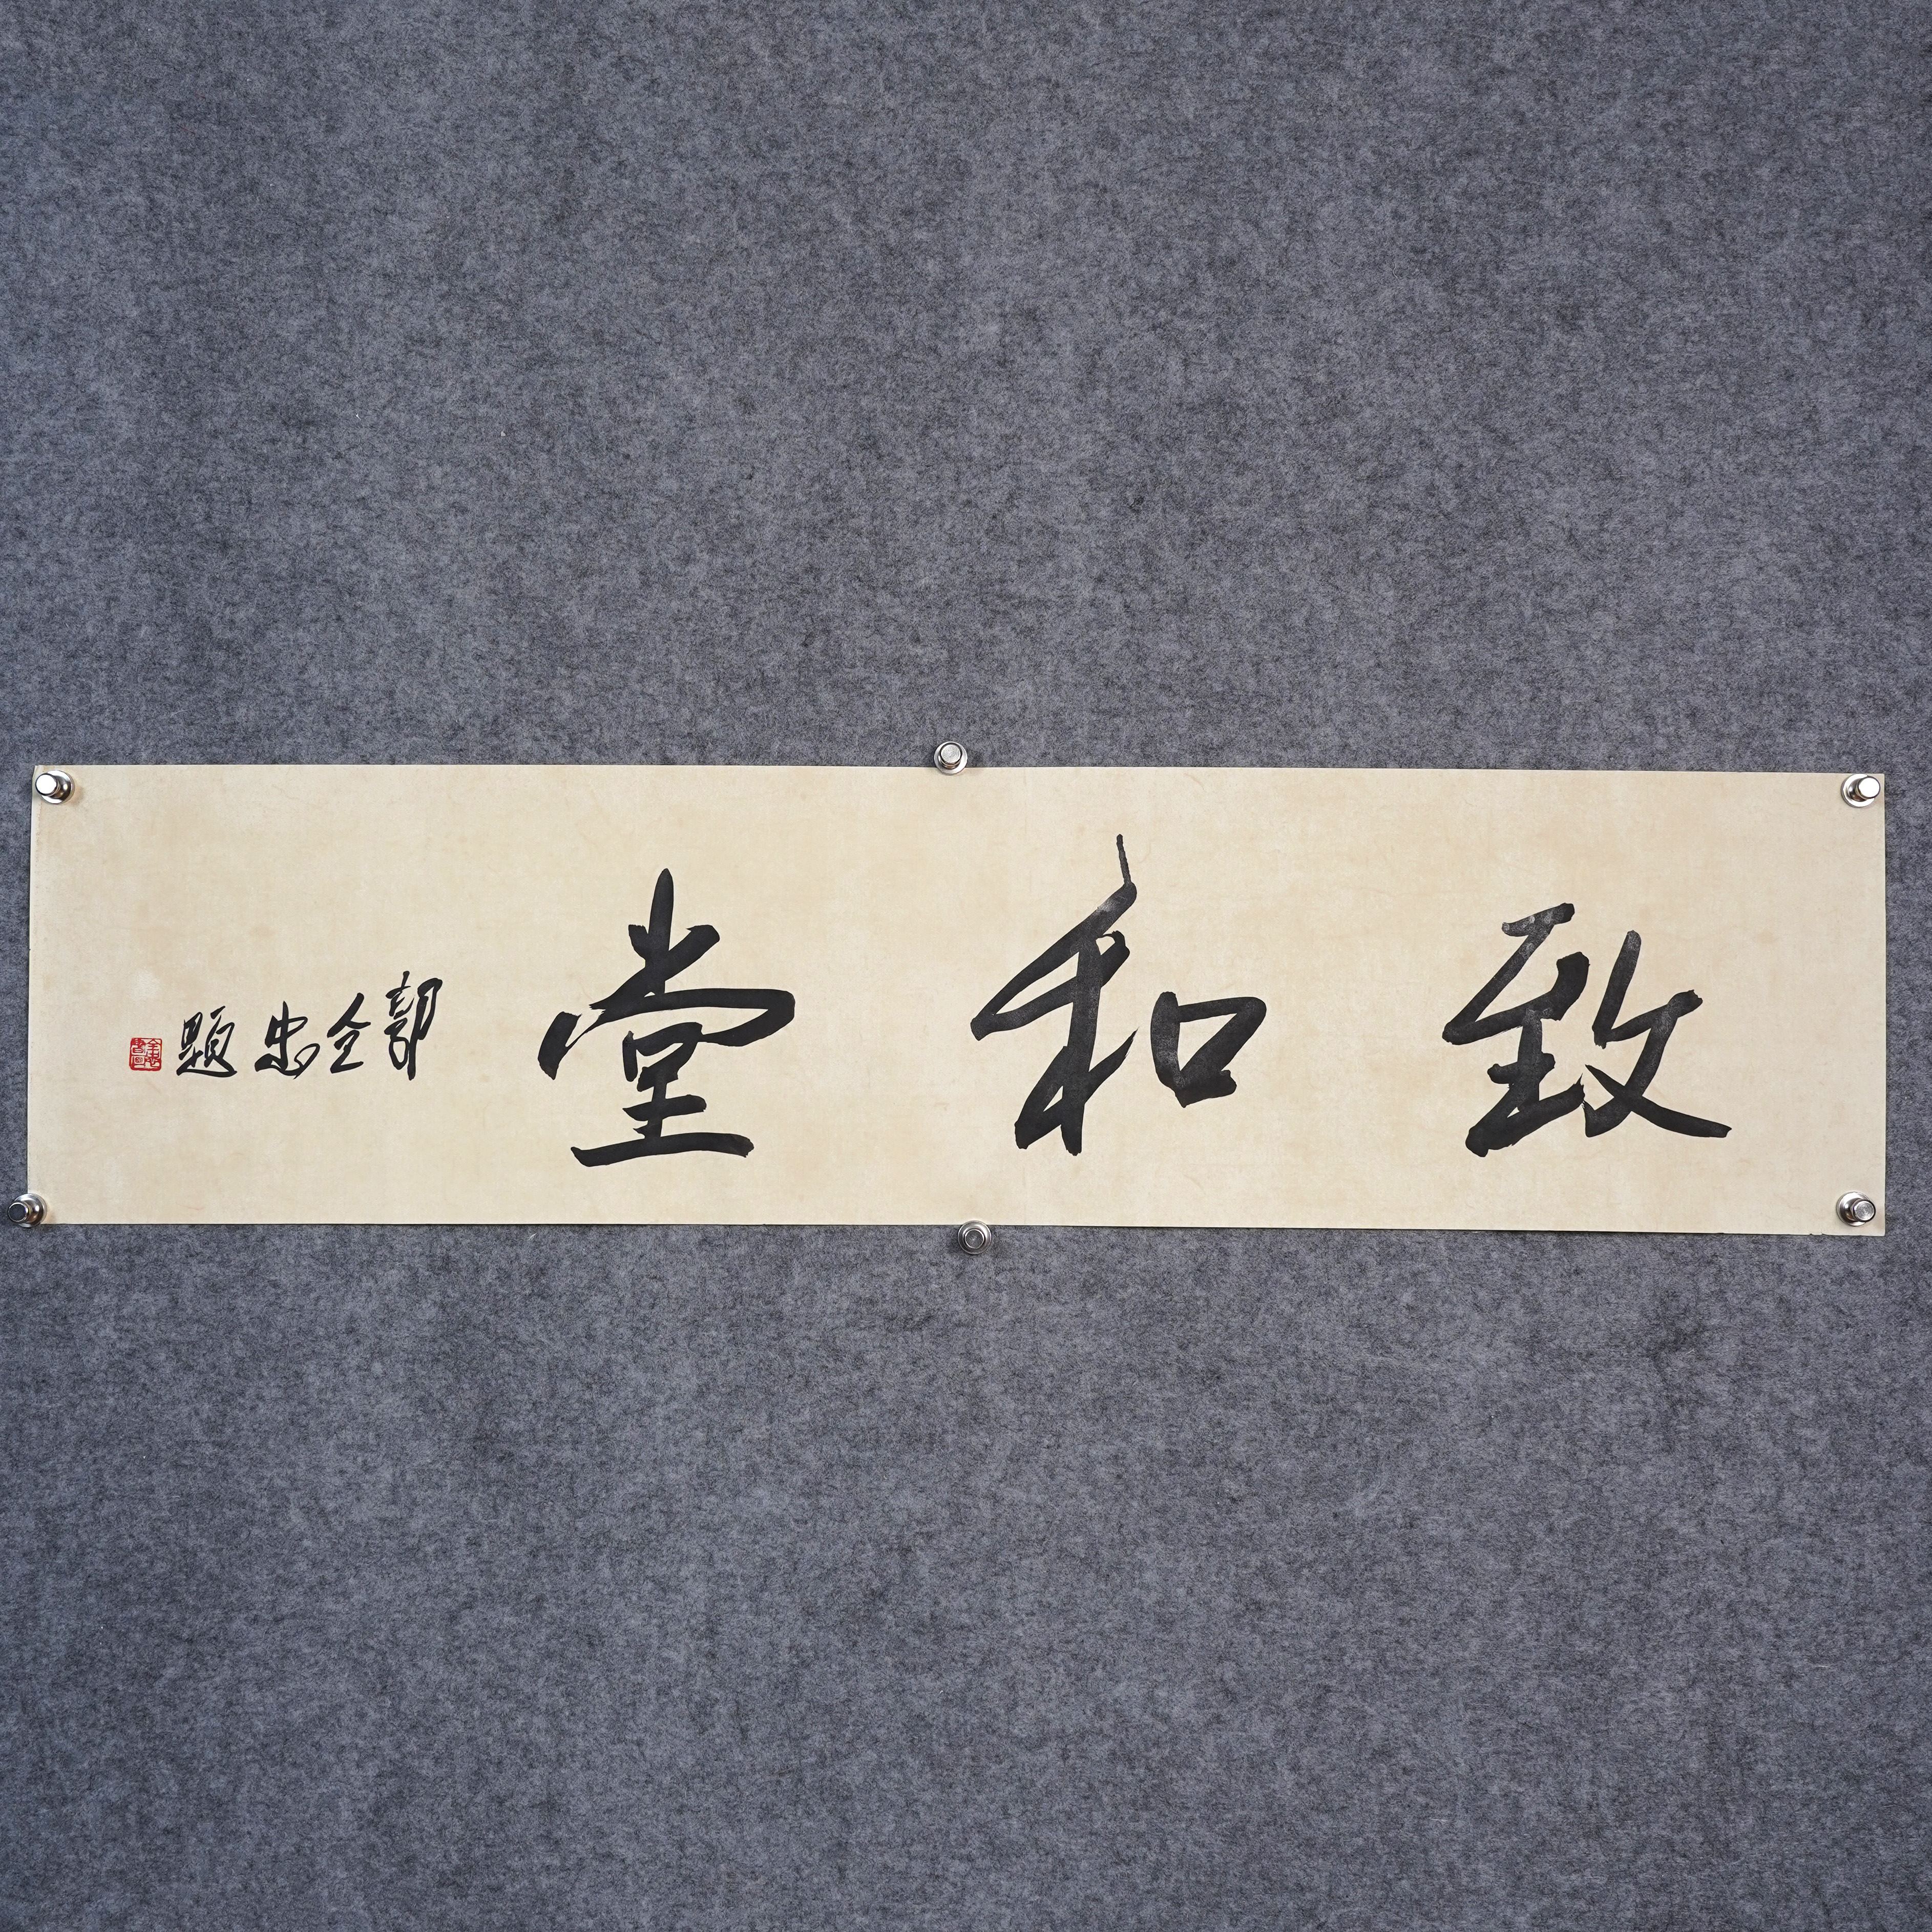 致和堂
郭全忠題